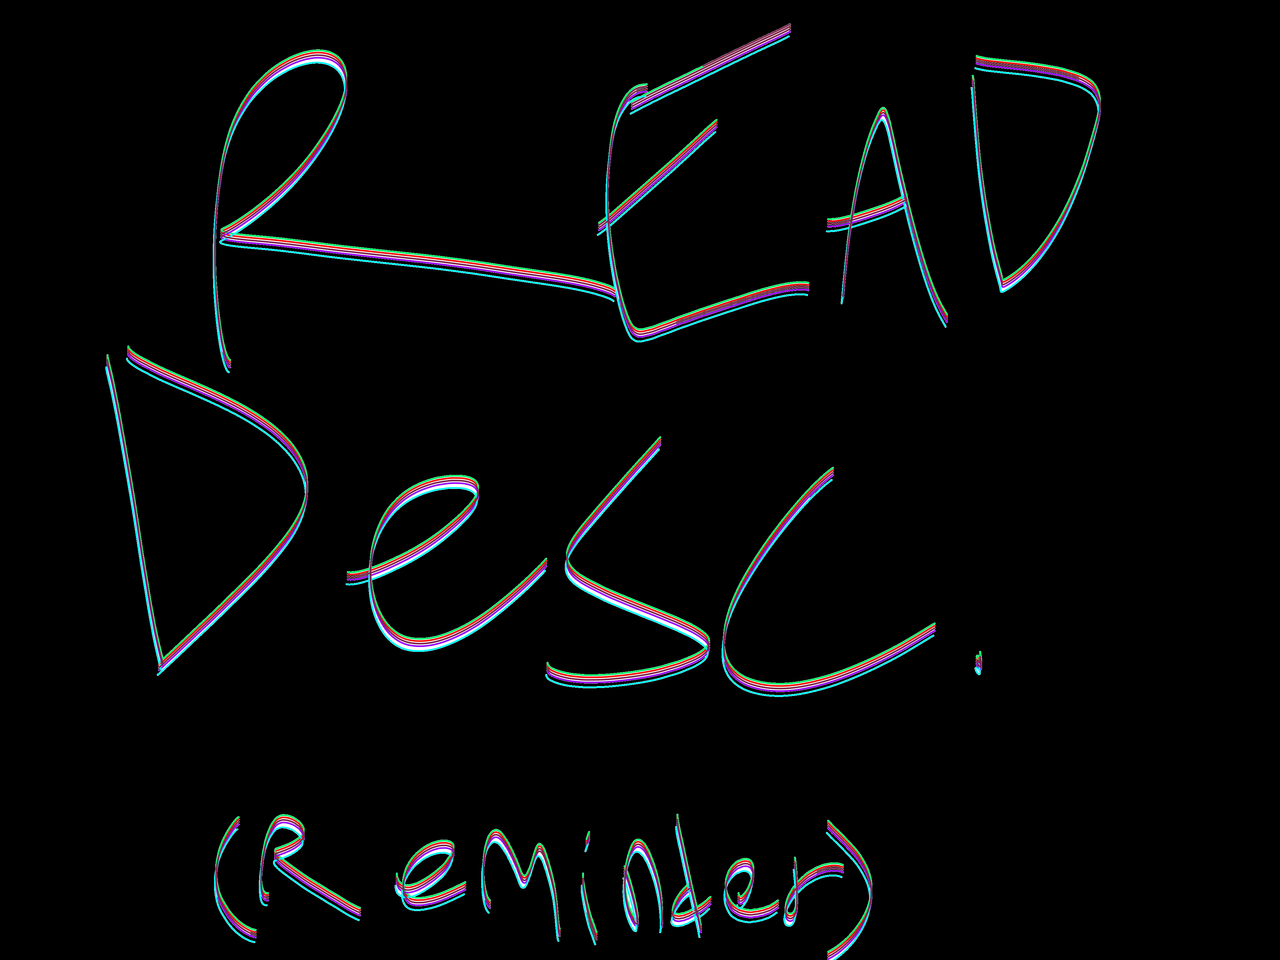 READ
Desc.
(Reminder)